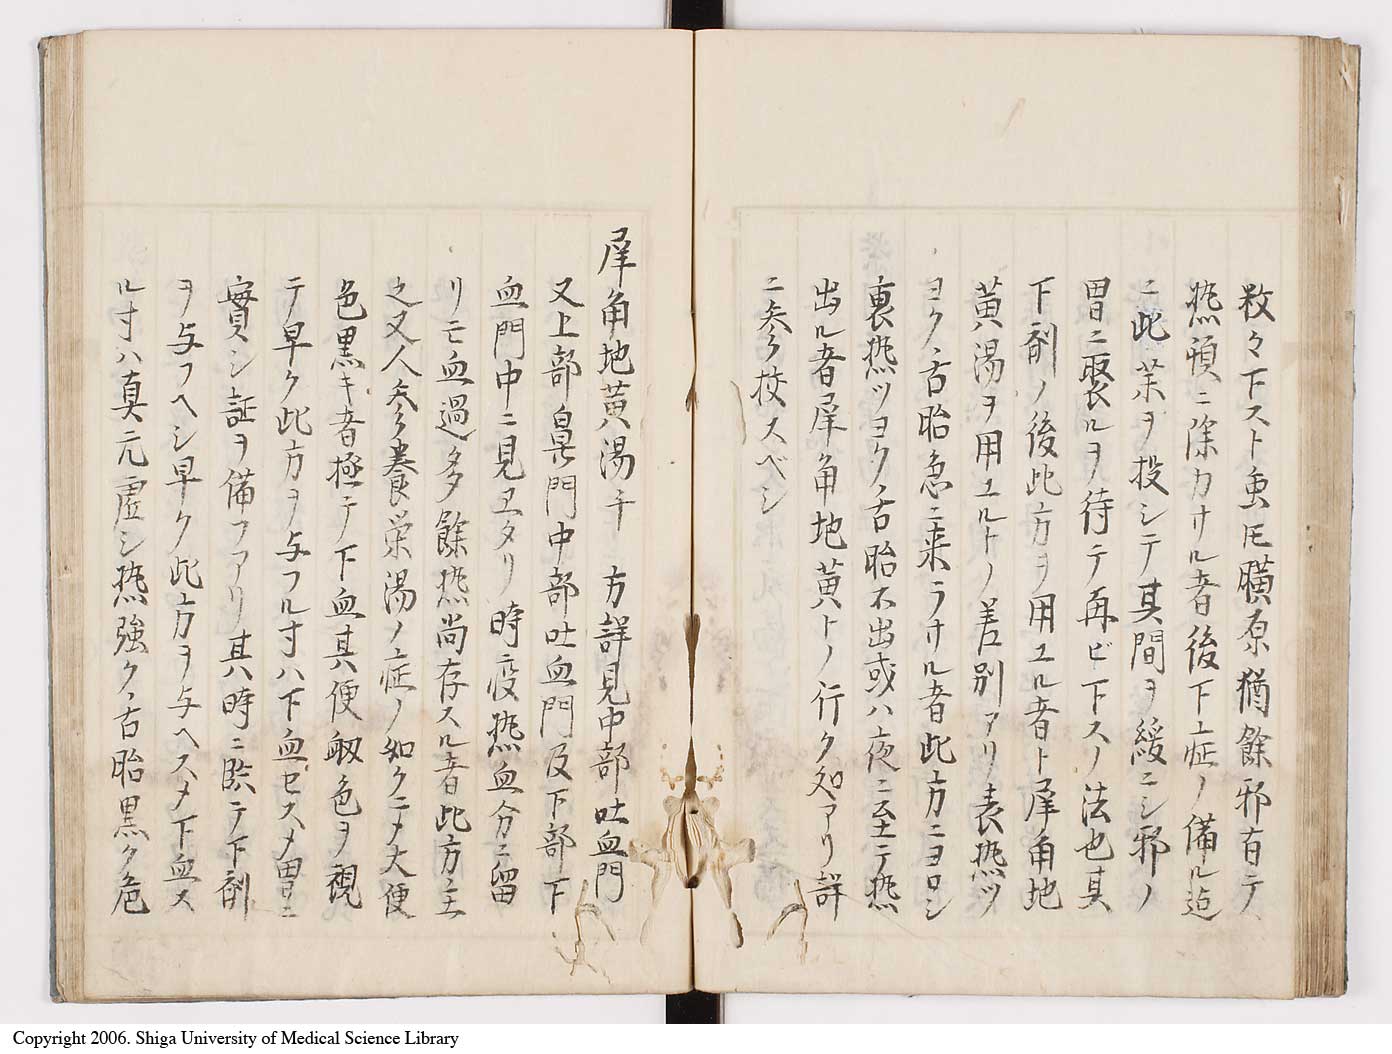 数々下スト虽𪜈膜原猶餘邪有テ
熱頓ニ除カサル者後下ノ症ノ備ル迠
ニ此茱ヲ投シテ其間ヲ緩ニシ邪ノ
胃ニ聚ルヲ待テ再ビ下スノ法也其
下剤ノ後此方ヲ用ユル者ト犀角地
黄湯ヲ用ユルトノ差別アリ表熱ツ
ヨク舌胎急ニ来ラサル者此方ニヨロシ
裏熱ツヨク舌胎不出或ハ夜ニ至テ熱
出ル者犀角地黄トノ行ク処アリ詳
ニ参考挍スベシ
犀角地黄湯 方詳見中部吐血門
又上部鼻門中部吐血門及下部下
血門中ニ見ヱタリ時疫熱血分ニ留
リモ血過多餘熱尚存スル者此方主
之又人参養栄湯ノ症ノ如クニメ大便
色黒キ者極テ下血其便衂色ヲ視
テ早ク此方ヲ与フル寸ハ下血セスメ胃ニ
實シ証ヲ備フアリ其時ニ臨テ下剤
ヲ与フヘシ早ク此方ヲ与ヘスメ下血ス
ル寸ハ真元虚シ熱強ク舌胎黒ク危
Copyright 2006. Shiga University of Medical Science Library